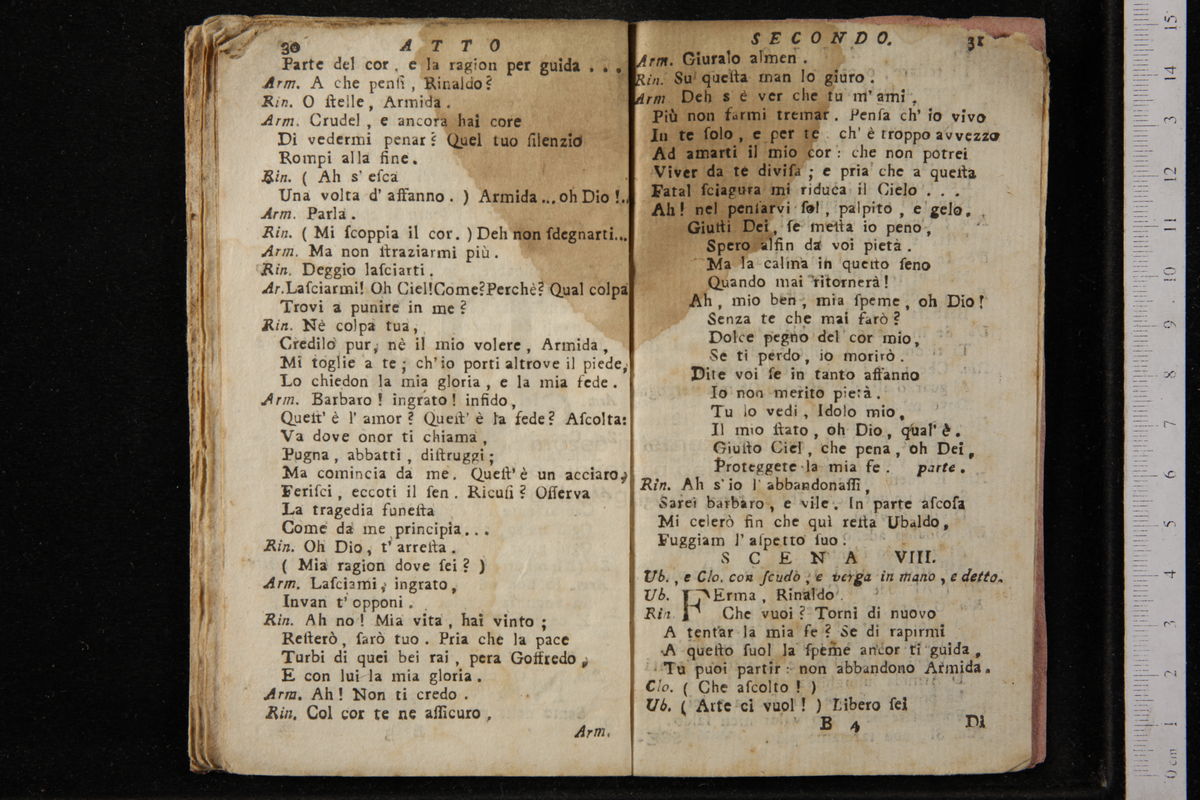 30 ATTO
Parte del cor, e la ragion per guida . . .
Arm. A che penſi, Rinaldo?
Rin. O ſtelle, Armida.
Arm. Crudel, e ancora hai core
Di vedermi penar? Quel tuo ſilenzio
Rompi alla fine.
Rin. ( Ah s' eſca
Una volta d' affanno. ) Armida... oh Dio!..
Arm. Parla.
Rin. ( Mi ſcoppia il cor. ) Deh non ſdegnarti...
Arm. Ma non ſtraziarmi più.
Rin. Deggio laſciarti.
Ar. Laſciarmi! Oh Ciel! Come? Perchè? Qual colpa
Trovi a punire in me?
Rin. Nè colpa tua,
Credilo pur, nè il mio volere, Armida,
Mi toglie a te; ch' io porti altrove il piede,
Lo chiedon la mia gloria, e la mia fede.
Arm. Barbaro! ingrato! infido,
Queſt' è l' amor? Queſt' è la fede? Aſcolta:
Va dove onor ti chiama,
Pugna, abbatti, diſtruggi;
Ma comincia da me. Queſt' è un acciaro,
Feriſci, eccoti il ſen. Ricuſi? Oſſerva
La tragedia funeſta
Come da me principia...
Rin. Oh Dio, t' arreſta.
( Mia ragion dove ſei? )
Arm. Laſciami, ingrato,
Invan t' opponi.
Rin. Ah no! Mia vita, hai vinto;
Reſterò, ſarò tuo. Pria che la pace
Turbi di quei bei rai, pera Goffredo,
E con lui la mia gloria.
Arm. Ah! Non ti credo.
Rin. Col cor te ne aſſicuro,
Arm.
SECONDO. 31
Arm. Giuralo almen.
Rin. Su queſta man lo giuro.
Arm. Deh s è ver che tu m' ami,
Più non farmi tremar. Penſa ch' io vivo
In te ſolo, e per te ch' è troppo avvezzo
Ad amarti il mio cor: che non potrei
Viver da te diviſa; e pria che a queſta
Fatal ſciagura mi riduca il Cielo . . .
Ah! nel penſarvi ſol, palpito, e gelo.
Giuſti Dei, ſe meſta io peno,
Spero alfin da voi pietà.
Ma la calma in queſto ſeno
Quando mai ritornerà!
Ah, mio ben, mia ſpeme, oh Dio!
Senza te che mai farò?
Dolce pegno del cor mio,
Se ti perdo, io morirò.
Dite voi ſe in tanto affanno
Io non merito pietà.
Tu lo vedi, Idolo mio,
Il mio ſtato, oh Dio, qual' è.
Giuſto Ciel, che pena, oh Dei,
Proteggete la mia fe. parte.
Rin. Ah s' io l' abbandonaſſi,
Sarei barbaro, e vile. In parte aſcoſa
Mi celerò fin che quì reſta Ubaldo,
Fuggiam l' aſpetto ſuo.
SCENA VIII.
Ub., e Clo. con ſcudo, e verga in mano, e detto.
Ub. FErma, Rinaldo.
Rin. Che vuoi? Torni di nuovo
A tentar la mia fe? Se di rapirmi
A queſto ſuol la ſpeme ancor ti guida,
Tu puoi partir: non abbandono Armida.
Clo. ( Che aſcolto! )
Ub. ( Arte ci vuol! ) Libero ſei
B 4 Di
0 cm 1 2 3 4 5 6 7 8 9 10 11 12 13 14 15